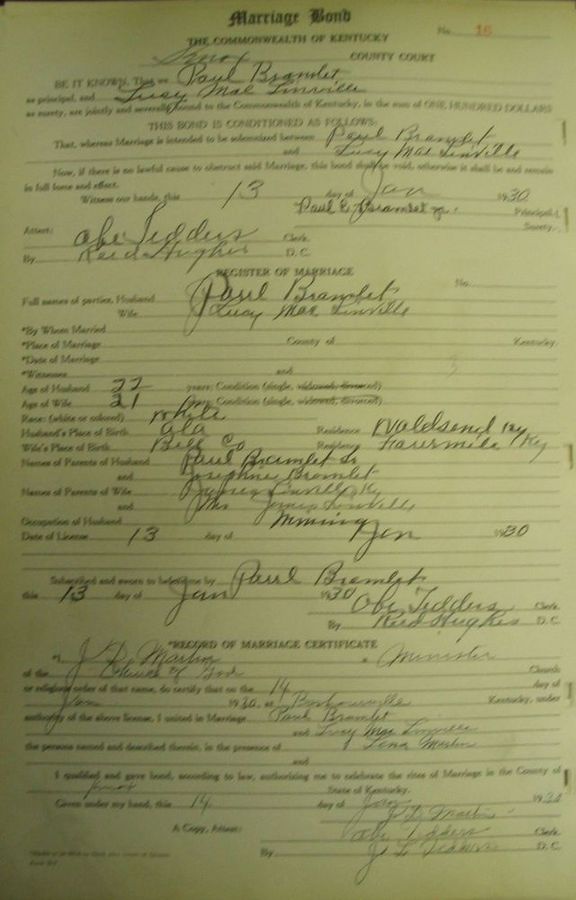 Marriage Bond
No. 16
THE COMMONWEALTH OF KENTUCKY
Knox COUNTY COURT
BE IT KNOWN, That we Paul Bramlet
as principal, and Lucy Mae Linville
as surety, are jointly and severally bound to the Commonwealth of Kentucky, in the sum of ONE HUNDRED DOLLARS
THIS BOND IS CONDITIONED AS FOLLOWS:
That, whereas Marriage is intended to be solemnized between Paul Bramlet
and Lucy Mae Linville
Now, if there is no lawful cause to obstruct said Marriage, this bond shall be void, otherwise it shall be and remain
in full force and effect.
Witness our hands, this 13 day of Jan 1930
Paul C. Bramlet Jr. Principal.
Surety.
Attest: Obe Tedders Clerk.
By Reed Hughes D. C.
REGISTER OF MARRIAGE
No.
Full names of parties, Husband Paul Bramlet
Wife Lucy Mae Linville
*By Whom Married
*Place of Marriage County of Kentucky
*Date of Marriage
*Witnesses and
Age of Husband 22 years; Condition (single, widowed, divorced)
Age of Wife 21 years; Condition (single, widowed, divorced)
Race: (white or colored) white
Husband's Place of Birth Ala Residence Ky
Wife's Place of Birth Bell Co Residence Fourmile Ky
Names of Parents of Husband Paul Bramlet Sr
and Josephine Bramlet
Names of Parents of Wife James Linville Ky
and Mrs James Linville
Occupation of Husband Mining
Date of License 13 day of Jan 1930
Subscribed and sworn to before me by Paul Bramlet
this 13 day of Jan 1930
Obe Tedders Clerk
By Reed Hughes D. C.
*RECORD OF MARRIAGE CERTIFICATE
*I, J. D. Martin a Minister
of the Church of God Church
or religious order of that name, do certify that on the 14 day of
Jan 1930, at Kentucky, under
authority of the above license, I united in Marriage Paul Bramlet
and Lucy Mae Linville
the persons named and described therein, in the presence of Lena Martin
and
I qualified and gave bond, according to law, authorizing me to celebrate the rites of Marriage in the County of
Knox State of Kentucky.
Given under my hand, this 14 day of Jan 1930
J. D. Martin
A Copy, Attest: Obe Tedders Clerk
By D. C.